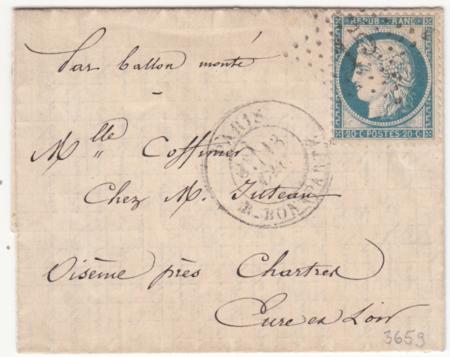 Par ballon monté
REPUB. FRANC.
20 C. POSTES 20 C.
PARIS
R. BONAPARTE
Mlle Coffinier
Chez M. Juteau
Oisème près Chartres
Eure et Loir
3659